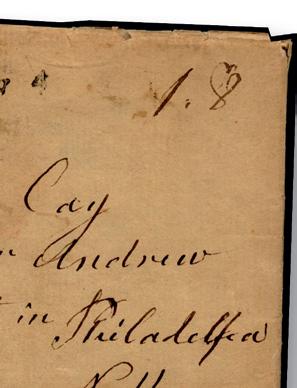 1. 8
Cay
Andrew
in Philadelfea